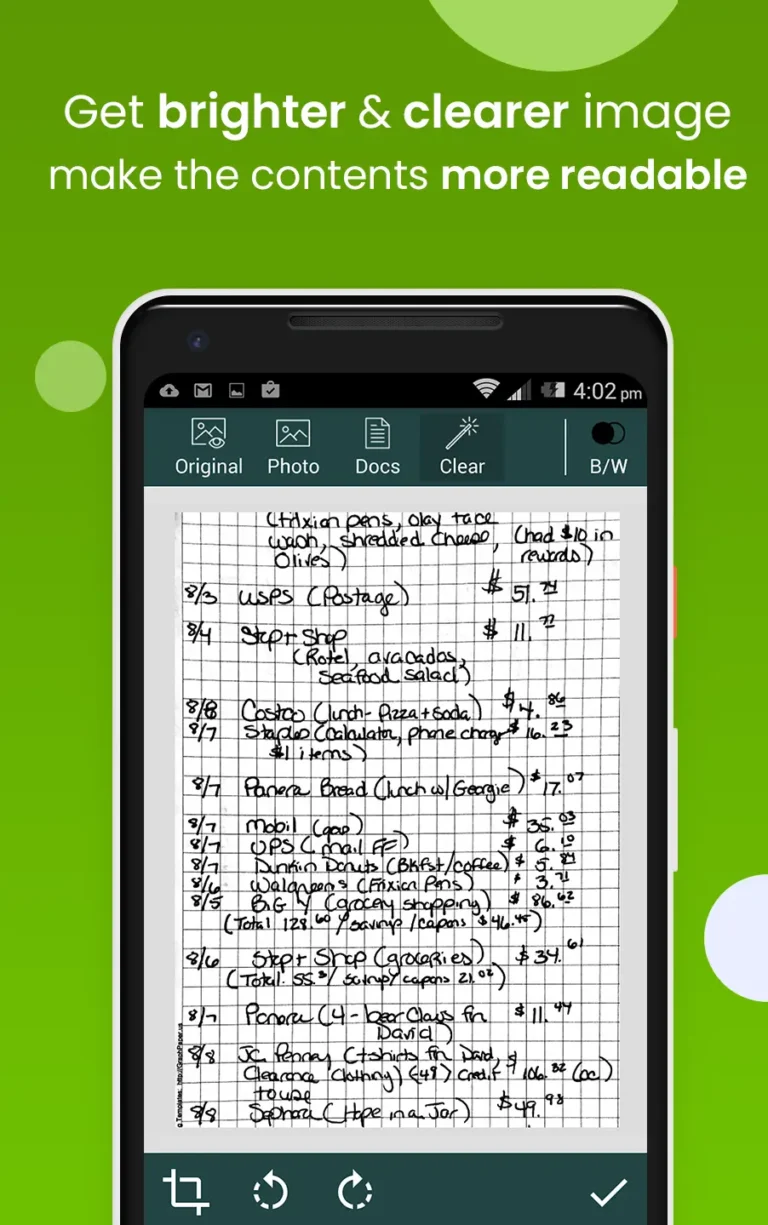 Get brighter & clearer image
make the contents more readable
4:02 pm
Original Photo Docs Clear B/W
(frixion pens, olay face
wash, shredded cheese, (had $10 in
Olives) rewards)
8/3 USPS (Postage) $ 51.74
8/4 Stop + Shop $ 11.77
(Rotel, avacados,
seafood salad)
8/8 Costco (lunch - Pizza + soda) $4.86
8/7 Staples (Calculator, phone charger $16.23
$1 items)
8/7 Panera Bread (lunch w/ Georgie) $17.07
8/7 Mobil (gas) $ 35.03
8/7 UPS (mail FF) $ 6.10
8/7 Dunkin Donuts (Bkfst/coffee) $ 5.84
8/6 Walgreens (Frixion Pens) $ 3.71
8/5 BIG Y (grocery shopping) $ 86.62
(Total 128.60 / savings / coupons $46.45)
8/6 Stop + Shop (groceries) $34.61
(Total 55. / savings/ coupons 21.02)
8/7 Panera (4 - bear Claws for $11.44
David)
8/8 JC Penney (t-shirts for David,
Clearance Clothing) (-48) credit $106.82 (cc)
to use
8/8 Sephora (Hope in a Jar) $49.98
Templates: http://GraphPaper.us